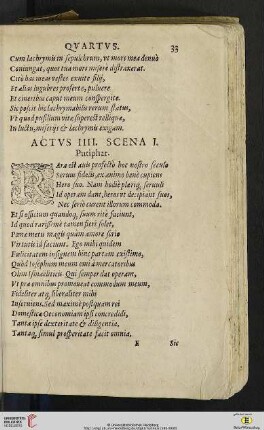 QVARTVS. 33
Cum lachrymis in sepulchrum, vt mors mea denuò
Coniungat, quos tua mors miserè distraxerat.
Citò huc meæ vestes exuite filij,
Et alias lugubres proferte, puluere
Et cineribus caput meum conspergite.
Sic posthac hic lachrymabilis rerum status,
Vt quod possilium vitæ superest reliquæ,
In luctu, miserijs & lachrymis exigam.
ACTVS IIII. SCENA I.
Putiphar.
RAra est auis profectò hoc nostro seculo
Seruus fidelis, ex animo bene cupiens
Hero suo. Nam hodie pleriq, seruuli
Id operam dant, heros vt decipiant suos,
Nec seriò curent illorum commoda.
Et si officium quandoq, suum ritè faciunt,
Id quod rarissimè tamen fieri solet,
Pœnæ metu magis quàm amore seriò
Virtutis id faciunt. Ego mihi quidem
Fœlicitatem insignem hinc partam existimo,
Quòd Iosephum meum emi à mercatoribus
Olim Ismaëliticis. Qui semper dat operam,
Vt præ omnibus promoueat commodum meum,
Fideliter atq, liberaliter mihi
Inseruiens. Sed maximè postquam rei
Domesticæ Oeconomiam ipsi concredidi,
Tanta ipse dexteritate & diligentia,
Tantaq, simul prosperitate facit omnia,
E Sic